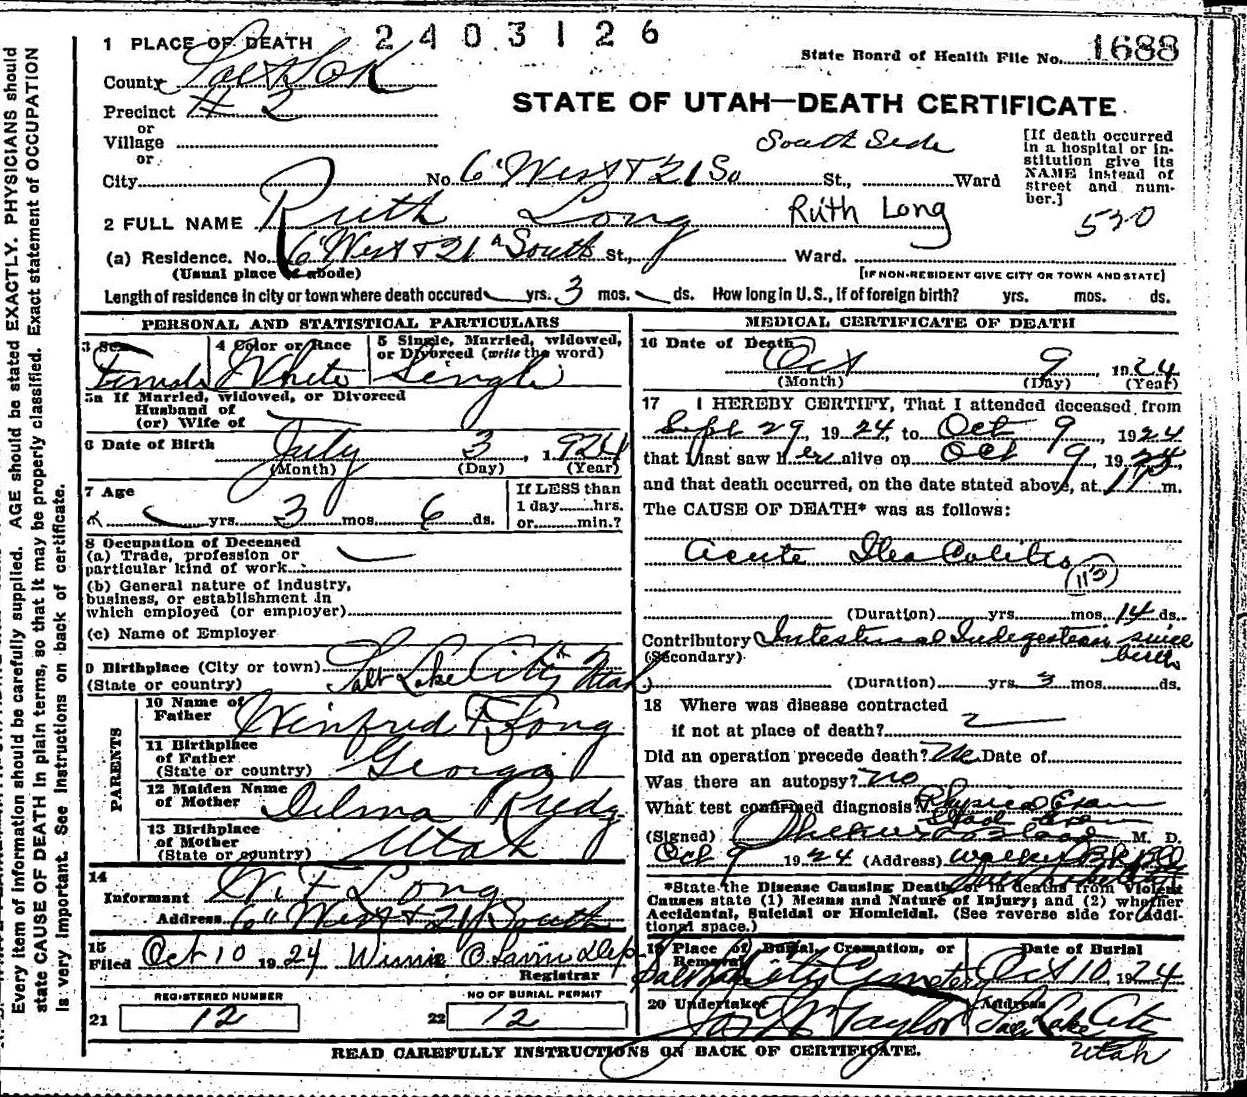 2403126
1 PLACE OF DEATH
State Board of Health File No. 1688
County
Precinct # 2
STATE OF UTAH—DEATH CERTIFICATE
or
Village
or
South Side
City No. 6" West & 21 So St., Ward
[If death occurred in a hospital or institution give its NAME instead of street and number.]
2 FULL NAME Ruth Long Ruth Long
520
(a) Residence. No. 6" West & 21" South St., Ward.
(Usual place of abode) [IF NON-RESIDENT GIVE CITY OR TOWN AND STATE]
Length of residence in city or town where death occured yrs. 3 mos. ds. How long in U.S., if of foreign birth? yrs. mos. ds.
PERSONAL AND STATISTICAL PARTICULARS
3 Sex Female
4 Color or Race White
5 Single, Married, widowed, or Divorced (write the word) Single
5a If Married, widowed, or Divorced
Husband of
(or) Wife of
6 Date of Birth July 3, 1924
(Month) (Day) (Year)
7 Age yrs. 3 mos. 6 ds.
If LESS than
1 day hrs.
or min.?
8 Occupation of Deceased
(a) Trade, profession or
particular kind of work
(b) General nature of industry,
business, or establishment in
which employed (or employer)
(c) Name of Employer
9 Birthplace (City or town) Salt Lake City Utah
(State or country)
PARENTS
10 Name of Father Winfred F. Long
11 Birthplace of Father
(State or country) Georga
12 Maiden Name of Mother Delma
13 Birthplace of Mother
(State or country) Utah
14
Informant W. F. Long
Address 6" West & 21 South
15
Filed Oct 10 1924 Winnie O. Dep
Registrar
REGISTERED NUMBER
21 12
NO OF BURIAL PERMIT
22 12
MEDICAL CERTIFICATE OF DEATH
16 Date of Death Oct 9 1924
(Month) (Day) (Year)
17 I HEREBY CERTIFY, That I attended deceased from
Sept 29, 1924, to Oct 9, 1924
that I last saw her alive on Oct 9, 1924
and that death occurred, on the date stated above, at m.
The CAUSE OF DEATH* was as follows:
Acute Ileo Colitis
113
(Duration) yrs. mos. 14 ds.
Contributory Intestinal Indigestion since birth
(Secondary)
(Duration) yrs. 3 mos. ds.
18 Where was disease contracted
if not at place of death?
Did an operation precede death? No Date of
Was there an autopsy? no
What test confirmed diagnosis? Physical Exam
(Signed) M. D.
Oct 9 1924 (Address) Walker Bk Bld
*State the Disease Causing Death, or in deaths from Violent
Causes state (1) Means and Nature of Injury; and (2) whether
Accidental, Suicidal or Homicidal. (See reverse side for additional space.)
19 Place of Burial, Cremation, or Removal Salt Lake City Cemetery
Date of Burial Oct 10, 1924
20 Undertaker Taylor
Address Salt Lake City Utah
READ CAREFULLY INSTRUCTIONS ON BACK OF CERTIFICATE.
Every item of information should be carefully supplied. AGE should be stated EXACTLY. PHYSICIANS should
state CAUSE OF DEATH in plain terms, so that it may be properly classified. Exact statement of OCCUPATION
is very important. See instructions on back of certificate.